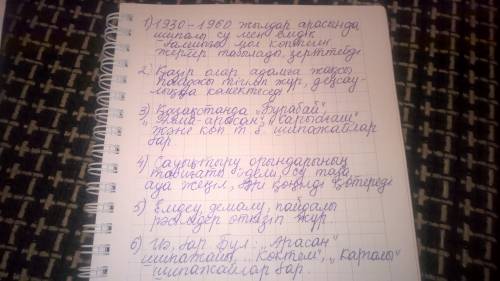 1) 1930-1960 жылдар арасында
шипалы су мен емдік
балшығы мол көптеген
жерлер табылады, зерттейді
2) Қазір олар адамға жақсы
пайдасы тигіп жүр, денсау-
лыққа көмектеседі
3) Қазақстанда "Бурабай",
"Алма-арасан", "Сарыағаш"
және көп т. б. шипажайлар
бар
4) Сауықтыру орындарының
табиғаты әдемі, су таза
ауа жеңіл, көңілді көтереді
5) Емдеу, демалу, пайдалы
рәсімдер өткізіп жүр
6) Иә, бар Бұл: "Арасан"
шипажайы, "Көктем", "Қапалы"
шипажайлар бар.